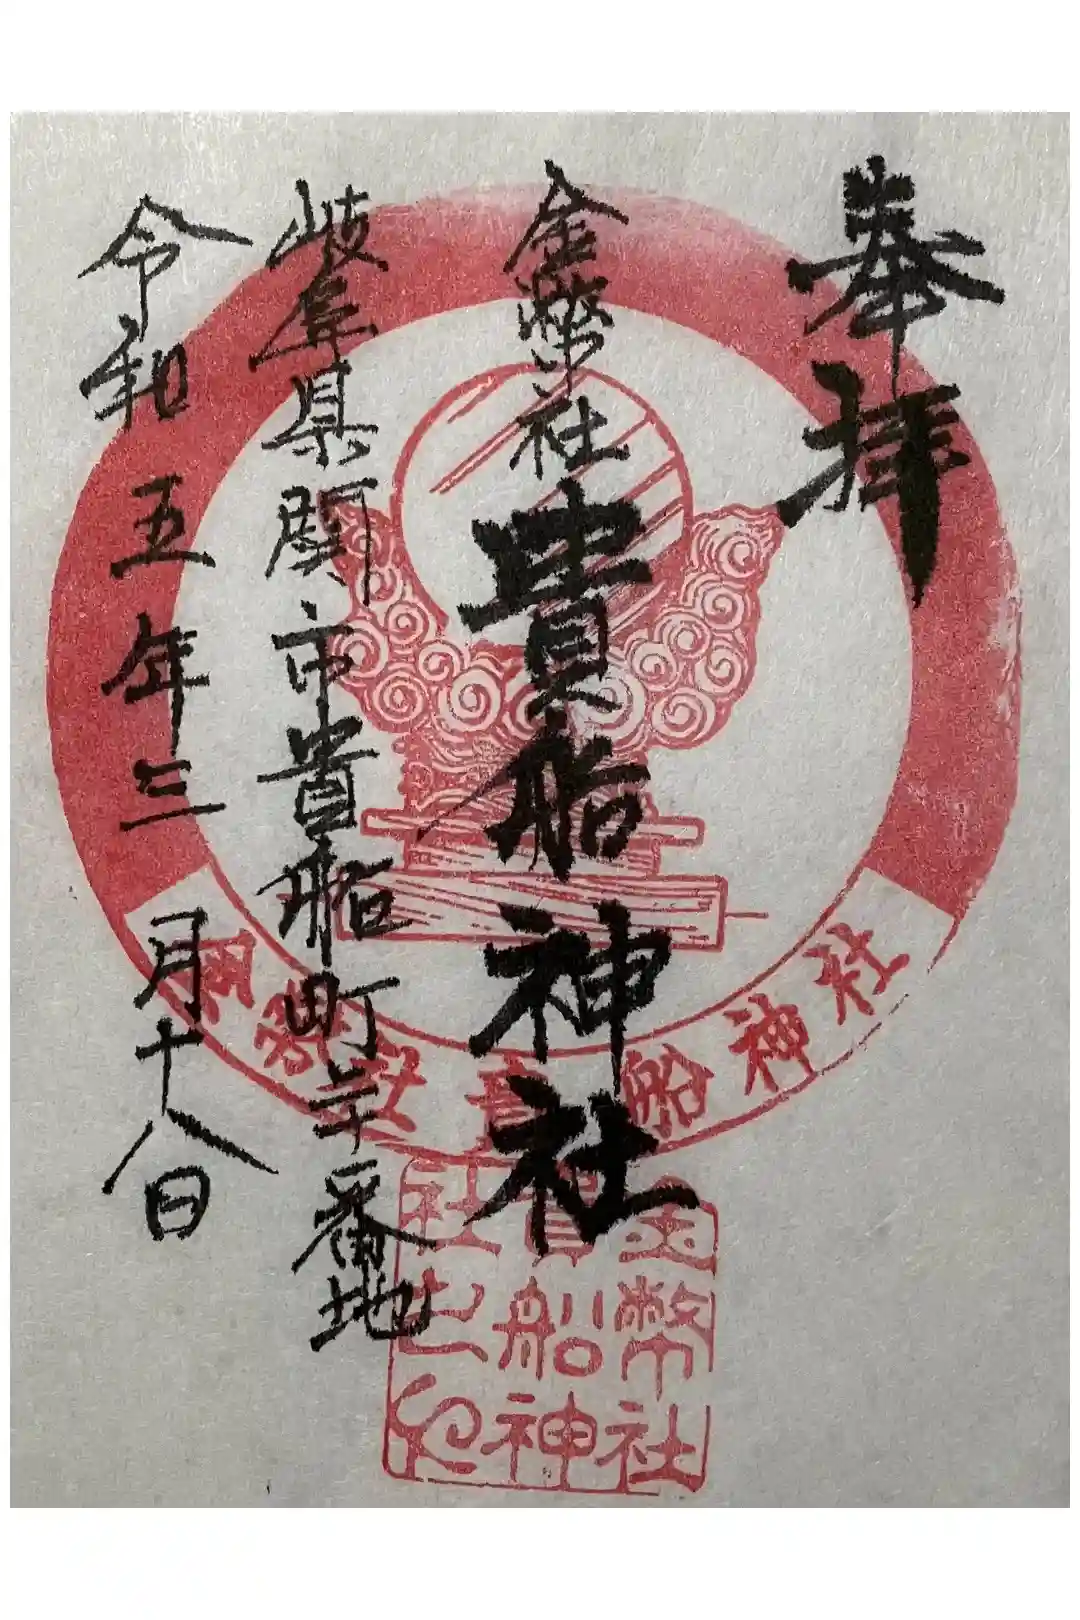 奉拝
金幣社
貴船神社
岐阜県関市貴船町二十番地
令和五年三月十八日
金幣社貴船神社
金幣社
貴船神社
社之印